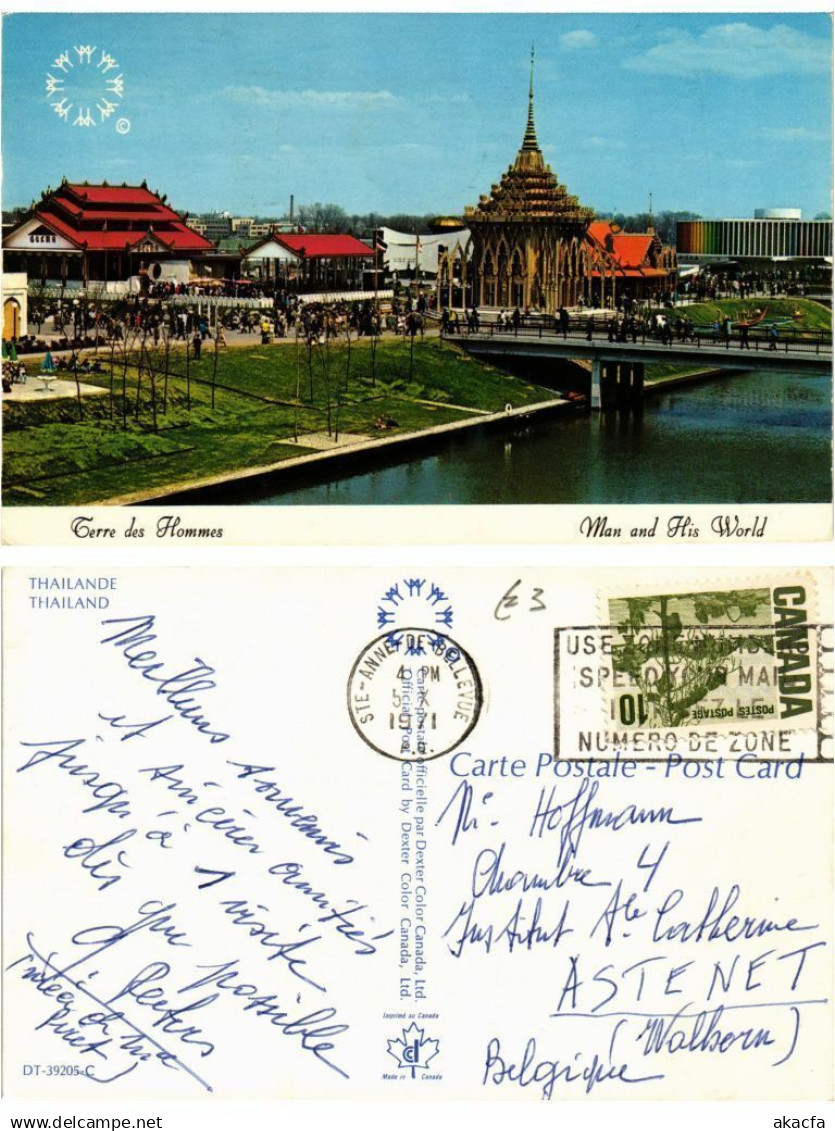 BURMA
©
Terre des Hommes
Man and His World
THAILANDE
THAILAND
£3
STE-ANNE-DE-BELLEVUE
4 PM
1971
P.Q.
USE
SPEED YOUR MAIL
NUMERO DE ZONE
CANADA
POSTES POSTAGE
10
Carte Postale - Post Card
Carte postale officielle par Dexter Color Canada, Ltd.
Official Post Card by Dexter Color Canada, Ltd.
Meilleurs souvenirs
et sincères amitiés
jusqu'à 1 visite
dès que possible
J Peeters
(
Piret)
Mr. Hoffmann
Chambre 4
Institut Ste. Catherine
ASTENET
(Walhorn)
Belgique
Imprimé au Canada
Made in Canada
DT-39205-C
www.delcampe.net
akacfa